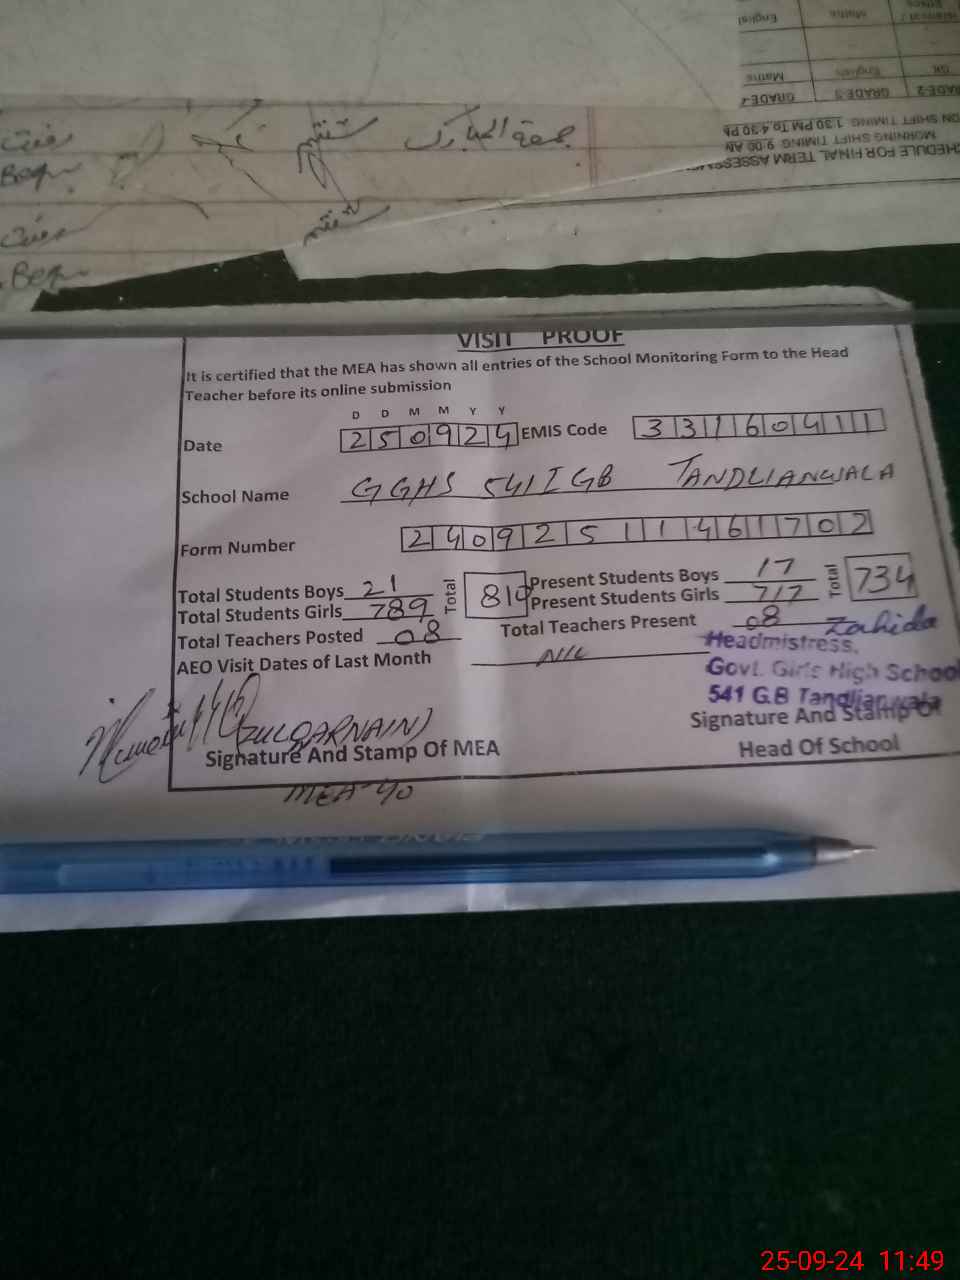 English Maths
GK English Maths
GRADE-2 GRADE-3 GRADE-4
ON SHIFT TIMING 1:30 PM To 4:30 PM
MORNING SHIFT TIMING 9:00 AM
HEDULE FOR FINAL TERM ASSESSM
جمعۃ المبارک ششم
ششم
VISIT PROOF
It is certified that the MEA has shown all entries of the School Monitoring Form to the Head
Teacher before its online submission
D D M M Y Y
Date 250924 EMIS Code 33160411
School Name GGHS 541 GB TANDLIANWALA
Form Number 2409251146 1702
Total Students Boys 21 Total 810 Present Students Boys 17 Total 734
Total Students Girls 789 Present Students Girls 717
Total Teachers Posted 08 Total Teachers Present 08 Zahida
AEO Visit Dates of Last Month Nil
Headmistress,
Govt. Girls High School
541 G.B Tandlianwala
(ZULQARNAIN)
Signature And Stamp Of MEA
MEA-40
Signature And Stamp Of
Head Of School
25-09-24 11:49